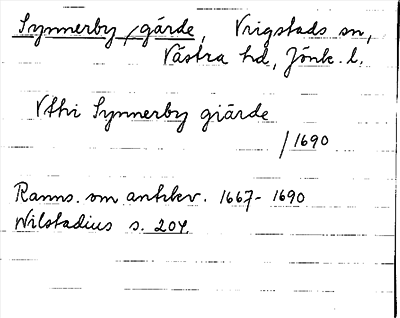 Synnerby, gärde, Vrigstads sn,
Västra hd, Jönk. l.
Vthi Synnerby giärde
/1690
Ranns. om antikv. 1667-1690
Wilstadius s. 204.